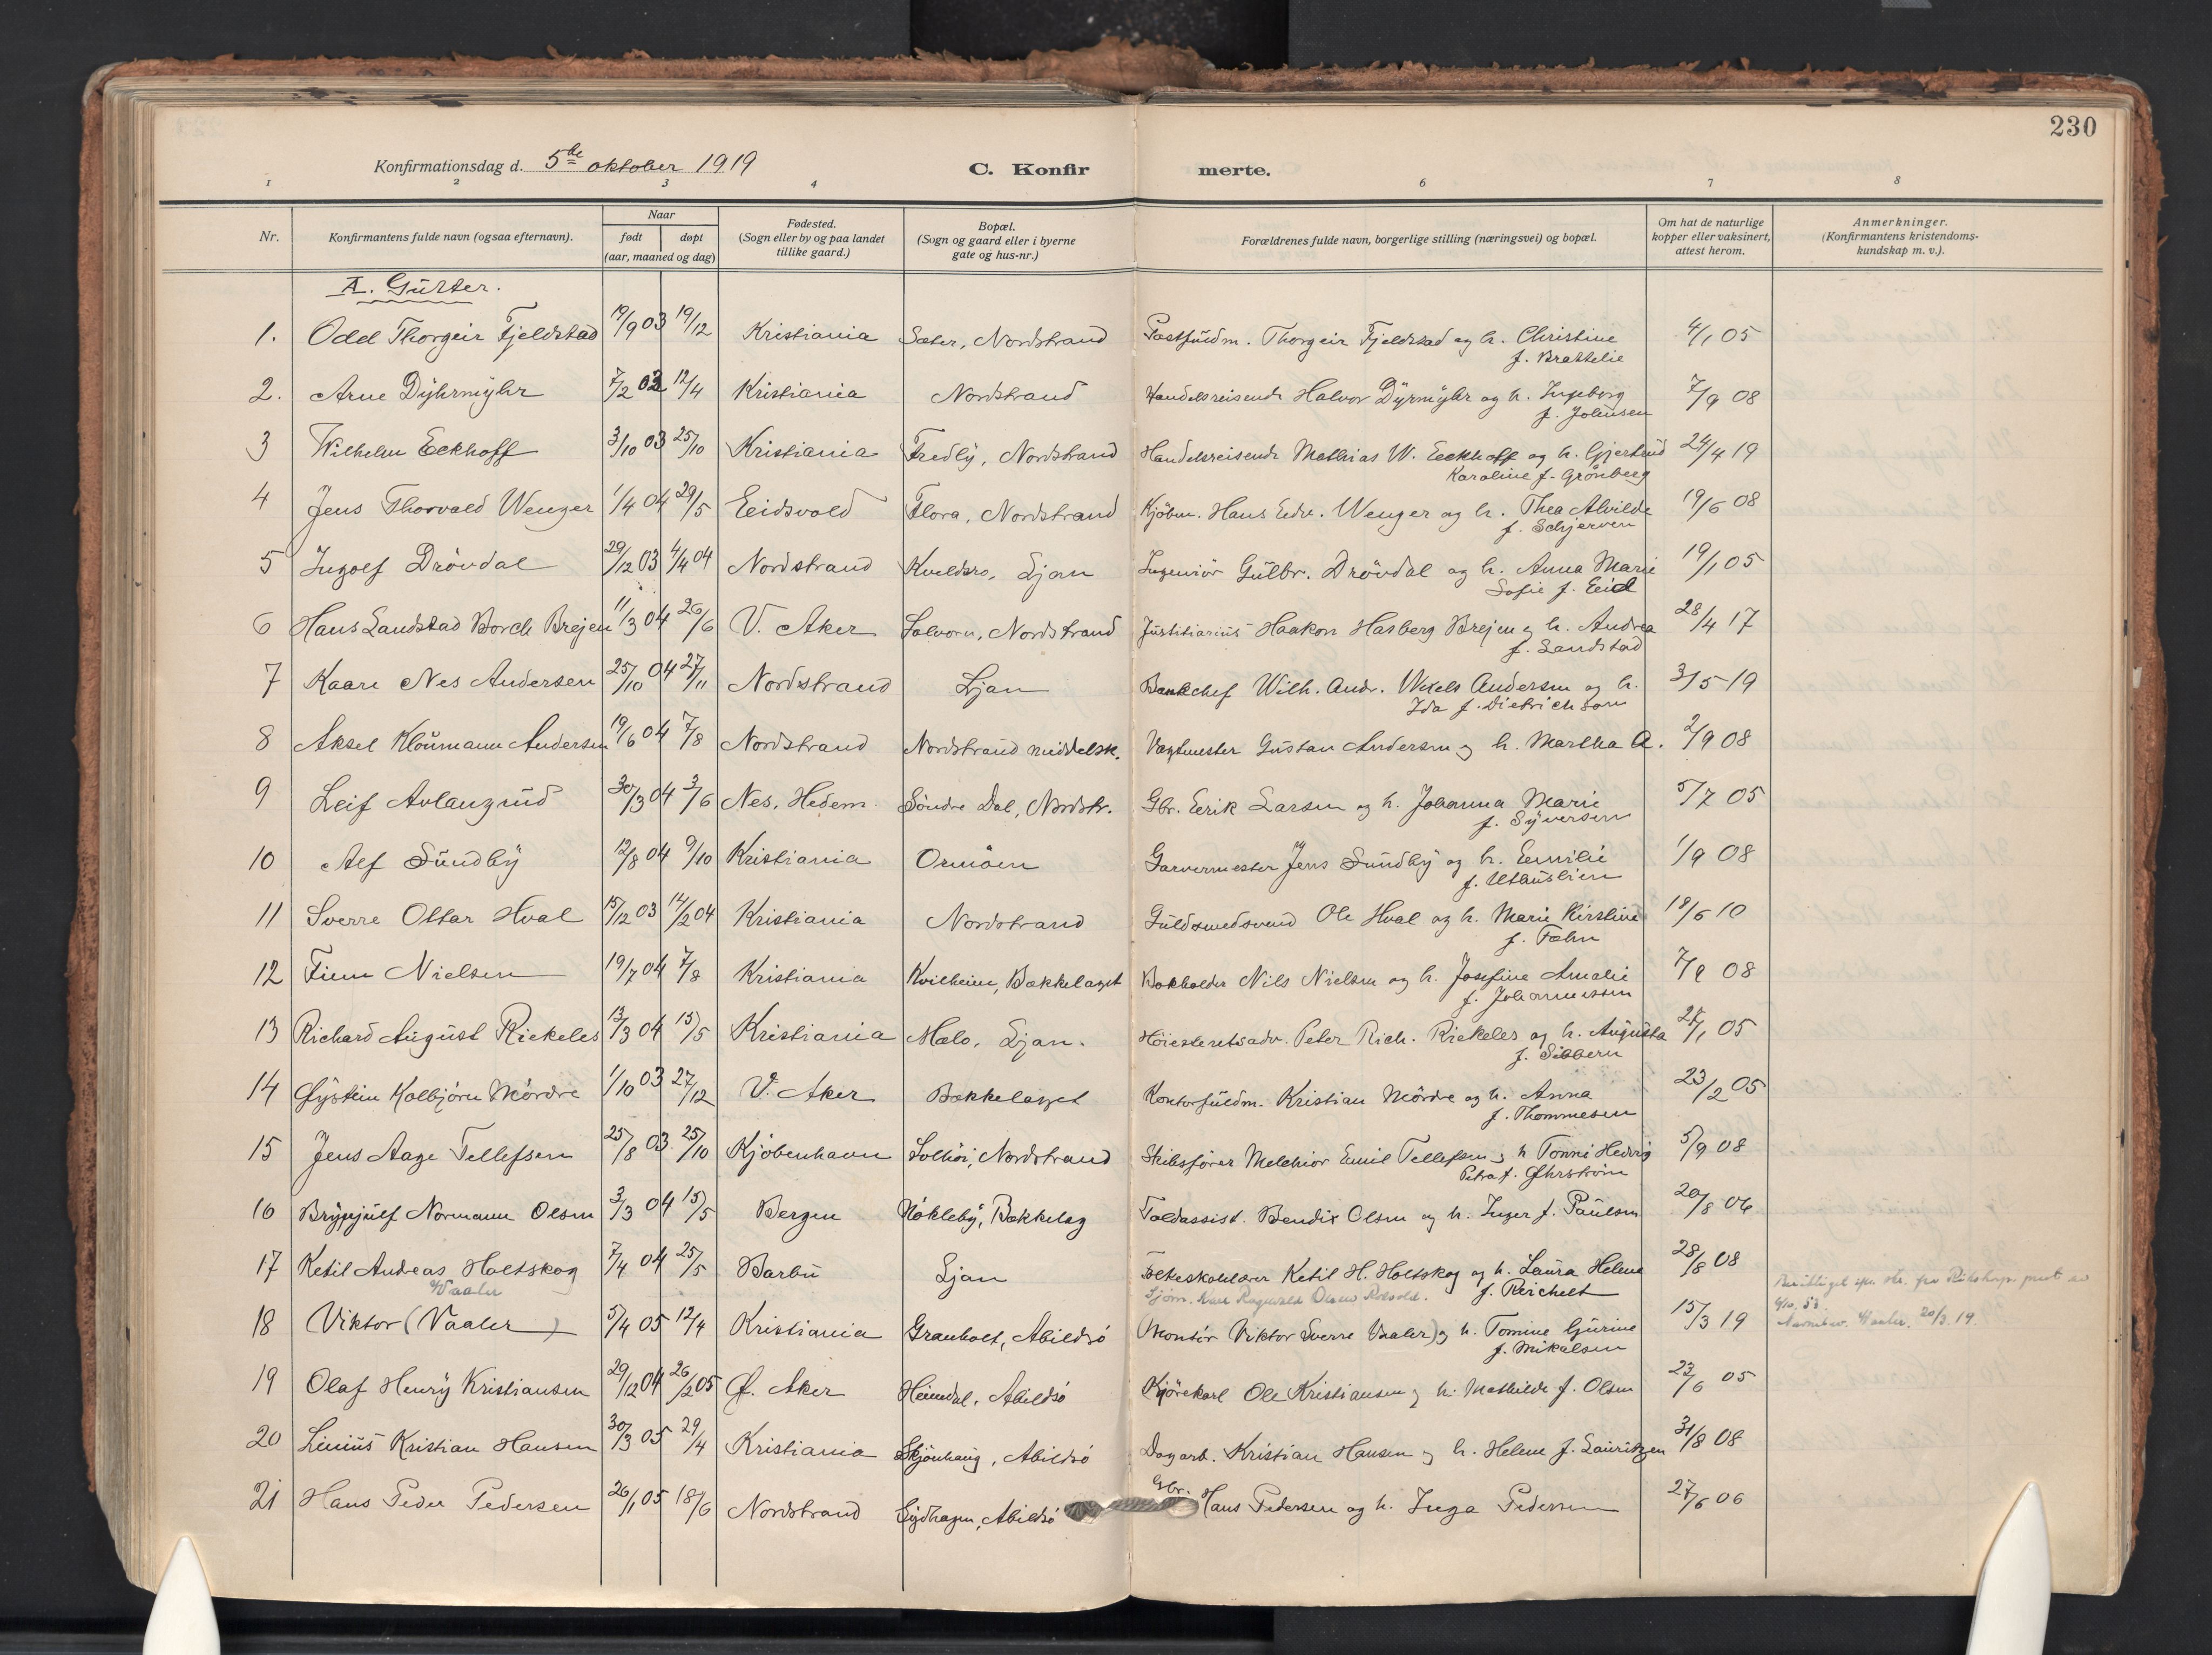 230
Konfirmationsdag d. 5te oktober 1919
C. Konfirmerte.
1 2 3 4 6 7 8
Nr.
Konfirmantens fulde navn (ogsaa efternavn).
Naar
født
døpt
(aar, maaned og dag)
Fødested.
(Sogn eller by og paa landet
tillike gaard.)
Bopæl.
(Sogn og gaard eller i byerne
gate og hus-nr.)
Forældrenes fulde navn, borgerlige stilling (næringsvei) og bopæl.
Om hat de naturlige
kopper eller vaksinert,
attest herom.
Anmerkninger.
(Konfirmantens kristendoms-
kundskap m. v.).
A. Gutter.
1. Odd Thorgeir Fjeldstad 19/9 03 19/12 Kristiania Sæter, Nordstrand Postfuldm. Thorgeir Fjeldstad og h. Christine 4/1 05
f. Brattelie
2. Arne Dyhrmyhr 7/2 03 12/4 Kristiania Nordstrand Handelsreisende Halvor Dyrmyhr og h. Ingeborg 7/9 08
f. Johnsen
3 Wilhelm Eckhoff 3/10 03 25/10 Kristiania Fredly, Nordstrand Handelsreisende Mathias W. Eeckhoff og h. Gjertrud 24/4 19
Karoline f. Grönberg
4 Jens Thorvald Wenger 1/4 04 29/5 Eidsvold Flora, Nordstrand Kjöbm. Hans Edv. Wenger og h. Thea Alvilde 19/6 08
f. Schjerven
5 Ingolf Drövdal 29/12 03 4/4 04 Nordstrand Kveldsro, Ljan Ingeniör Gulbr. Drövdal og h. Anna Marie 19/1 05
Sofie f. Eid
6 Hans Landstad Borch Brejen 11/3 04 26/6 V. Aker Solvorn, Nordstrand Justitiarius Haakon Hasberg Brejen og h. Andrea 28/4 17
f. Landstad
7 Kaare Nes Andersen 25/10 04 27/11 Nordstrand Ljan Bankchef Wilh. Andr. Wexels Andersen og h. 3/5 19
Ida f. Dietrichson
8 Aksel Kloumann Andersen 19/6 04 7/8 Nordstrand Nordstrand middelsk. Vagtmester Gustav Andersen og h. Martha A. 2/9 08
9 Leif Avlangrud 30/3 04 3/6 Nes, Hedem. Söndre Dal, Nordstr. Gbr. Eerik Larsen og h. Johanna Marie 5/7 05
f. Syversen
10 Alf Sundby 12/8 04 9/10 Kristiania Ormöen Garvermester Jens Sundby og h. Emilie 1/9 08
f. Uthuslien
11 Sverre Ottar Hval 15/12 03 14/2 04 Kristiania Nordstrand Guldsmedsvend Ole Hval og h. Marie Kirstine 18/6 10
f. Fæhn
12 Finn Nielsen 19/7 04 7/8 Kristiania Kvilheim, Bækkelaget Bokholder Nils Nielsen og h. Josefine Amalie 7/9 08
f. Johannessen
13 Richard August Riekeles 13/3 04 15/5 Kristiania Malo, Ljan. Höiesteretsadv. Peter Rich. Riekeles og h. Augusta 27/1 05
f. Sibbern
14 Øystein Kolbjörn Mördre 1/10 03 27/12 V. Aker Bækkelaget Kontorfuldm. Kristian Mördre og h. Anna 23/2 05
f. Thommesen
15 Jens Aage Tellefsen 25/8 03 25/10 Kjöbenhavn Solhöi, Nordstrand Skibsförer Melchior Emil Tellefsen og h Tonni Hedvig 5/9 08
Petra f. Øhrström
16 Brynjulf Normann Olsen 3/3 04 15/5 Bergen Nökleby, Bækkelag Toldassist. Bendix Olsen og h. Inger f. Paulsen 20/8 06
17 Ketil Andreas Holtskog 7/4 04 25/5 Barbu Ljan Folkeskolelærer Ketil H. Holtskog og h. Laura Helene 28/8 08
f. Reichelt
Vaaler
18 Viktor (Vaaler) 5/4 05 12/4 Kristiania Granholt, Abildsö Montör Viktor Sverre Vaaler) og h. Tomine Gurine 15/3 19 Navnebev. Vaaler. 20/3 19.
f. Mikalsen
19 Olaf Henry Kristiansen 29/12 04 26/2 05 Ø. Aker Heimdal, Abildsö Kjörekarl Ole Kristiansen og h. Mathilde f. Olsen 23/6 05
20 Linius Kristian Hansen 30/3 05 29/4 Kristiania Skjönhaug, Abildsö Dagarb. Kristian Hansen og h. Helene f. Lauritzen 31/8 08
21 Hans Peder Pedersen 26/1 05 18/6 Nordstrand Eydhagen, Abildsö Gbr. Hans Pedersen og h. Inga Pedersen 27/6 06